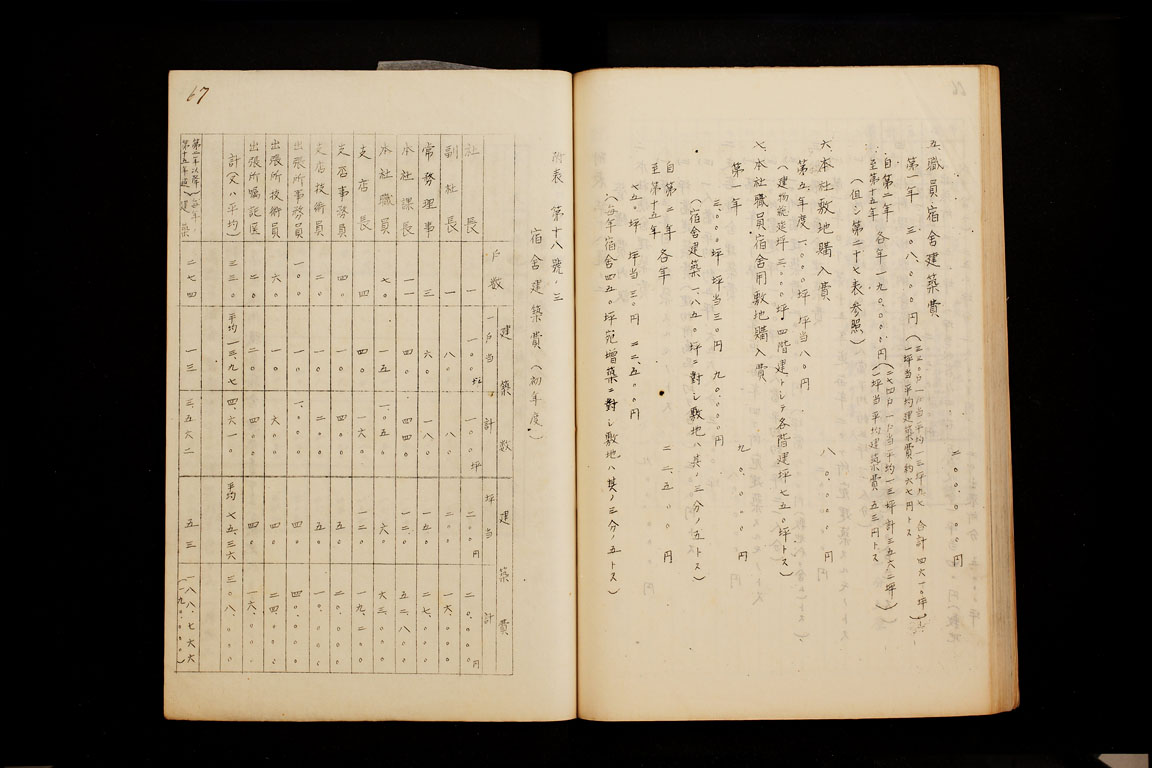 二〇〇、〇〇〇円
五、職員宿舍建築費
第一年 三〇八、〇〇〇円(三三〇戸一戸当平均一三坪九七 合計四六一〇坪)
一坪当平均建築費約六七円トス
自第二年
至第十五年 各年一九〇、〇〇〇円(二七四戸一戸当平均一三坪計三五六二坪)
一坪当平均建築費五三円トス
(但シ第二十七表参照)
六、本社敷地購入費 八〇、〇〇〇円
第五年度 一、〇〇〇坪 坪当八〇円
(建物総延坪三、〇〇〇坪 四階建トシテ各階建坪七五〇坪トス)
七、本社職員宿舍用敷地購入費
第一年 九〇、〇〇〇円
三、〇〇〇坪 坪当三〇円 九〇、〇〇〇円
(宿舍建築一、八五〇坪ニ對シ敷地ハ其ノ三分ノ五トス)
自第二年
至第十五年 各年 二二、五〇〇円
七五〇坪 坪当三〇円 二二、五〇〇円
(每年宿舍四五〇坪宛增築ニ對シ敷地ハ其ノ三分ノ五トス)
67
附表 第十八號ノ三
宿舍建築費(初年度)
戸数 建築数 一戸当 計 建築費 坪当 計
社長 一 一〇〇坪 一〇〇坪 二〇〇円 二〇、〇〇〇円
副社長 一 八〇 八〇 二〇〇 一六、〇〇〇
常務理事 三 六〇 一八〇 一五〇 二七、〇〇〇
本社課長 一一 四〇 四四〇 一二〇 五二、八〇〇
本社職員 七〇 一五 一、〇五〇 六〇 六三、〇〇〇
支店長 四 四〇 一六〇 一二〇 一九、二〇〇
支店事務員 四〇 一〇 四〇〇 五〇 二〇、〇〇〇
支店技術員 二〇 一〇 二〇〇 五〇 一〇、〇〇〇
出張所事務員 一〇〇 一〇 一、〇〇〇 四〇 四〇、〇〇〇
出張所技術員 六〇 一〇 六〇〇 四〇 二四、〇〇〇
出張所嘱託医 二〇 二〇 四〇〇 四〇 一六、〇〇〇
計(又ハ平均) 三三〇 平均一三、九七 四、六一〇 平均七五、三六 三〇八、〇〇〇
第二年以降
第十五年迄 每年建築 二七四 一三 三、五六二 五三 一八八、七六六
(一九〇、〇〇〇)